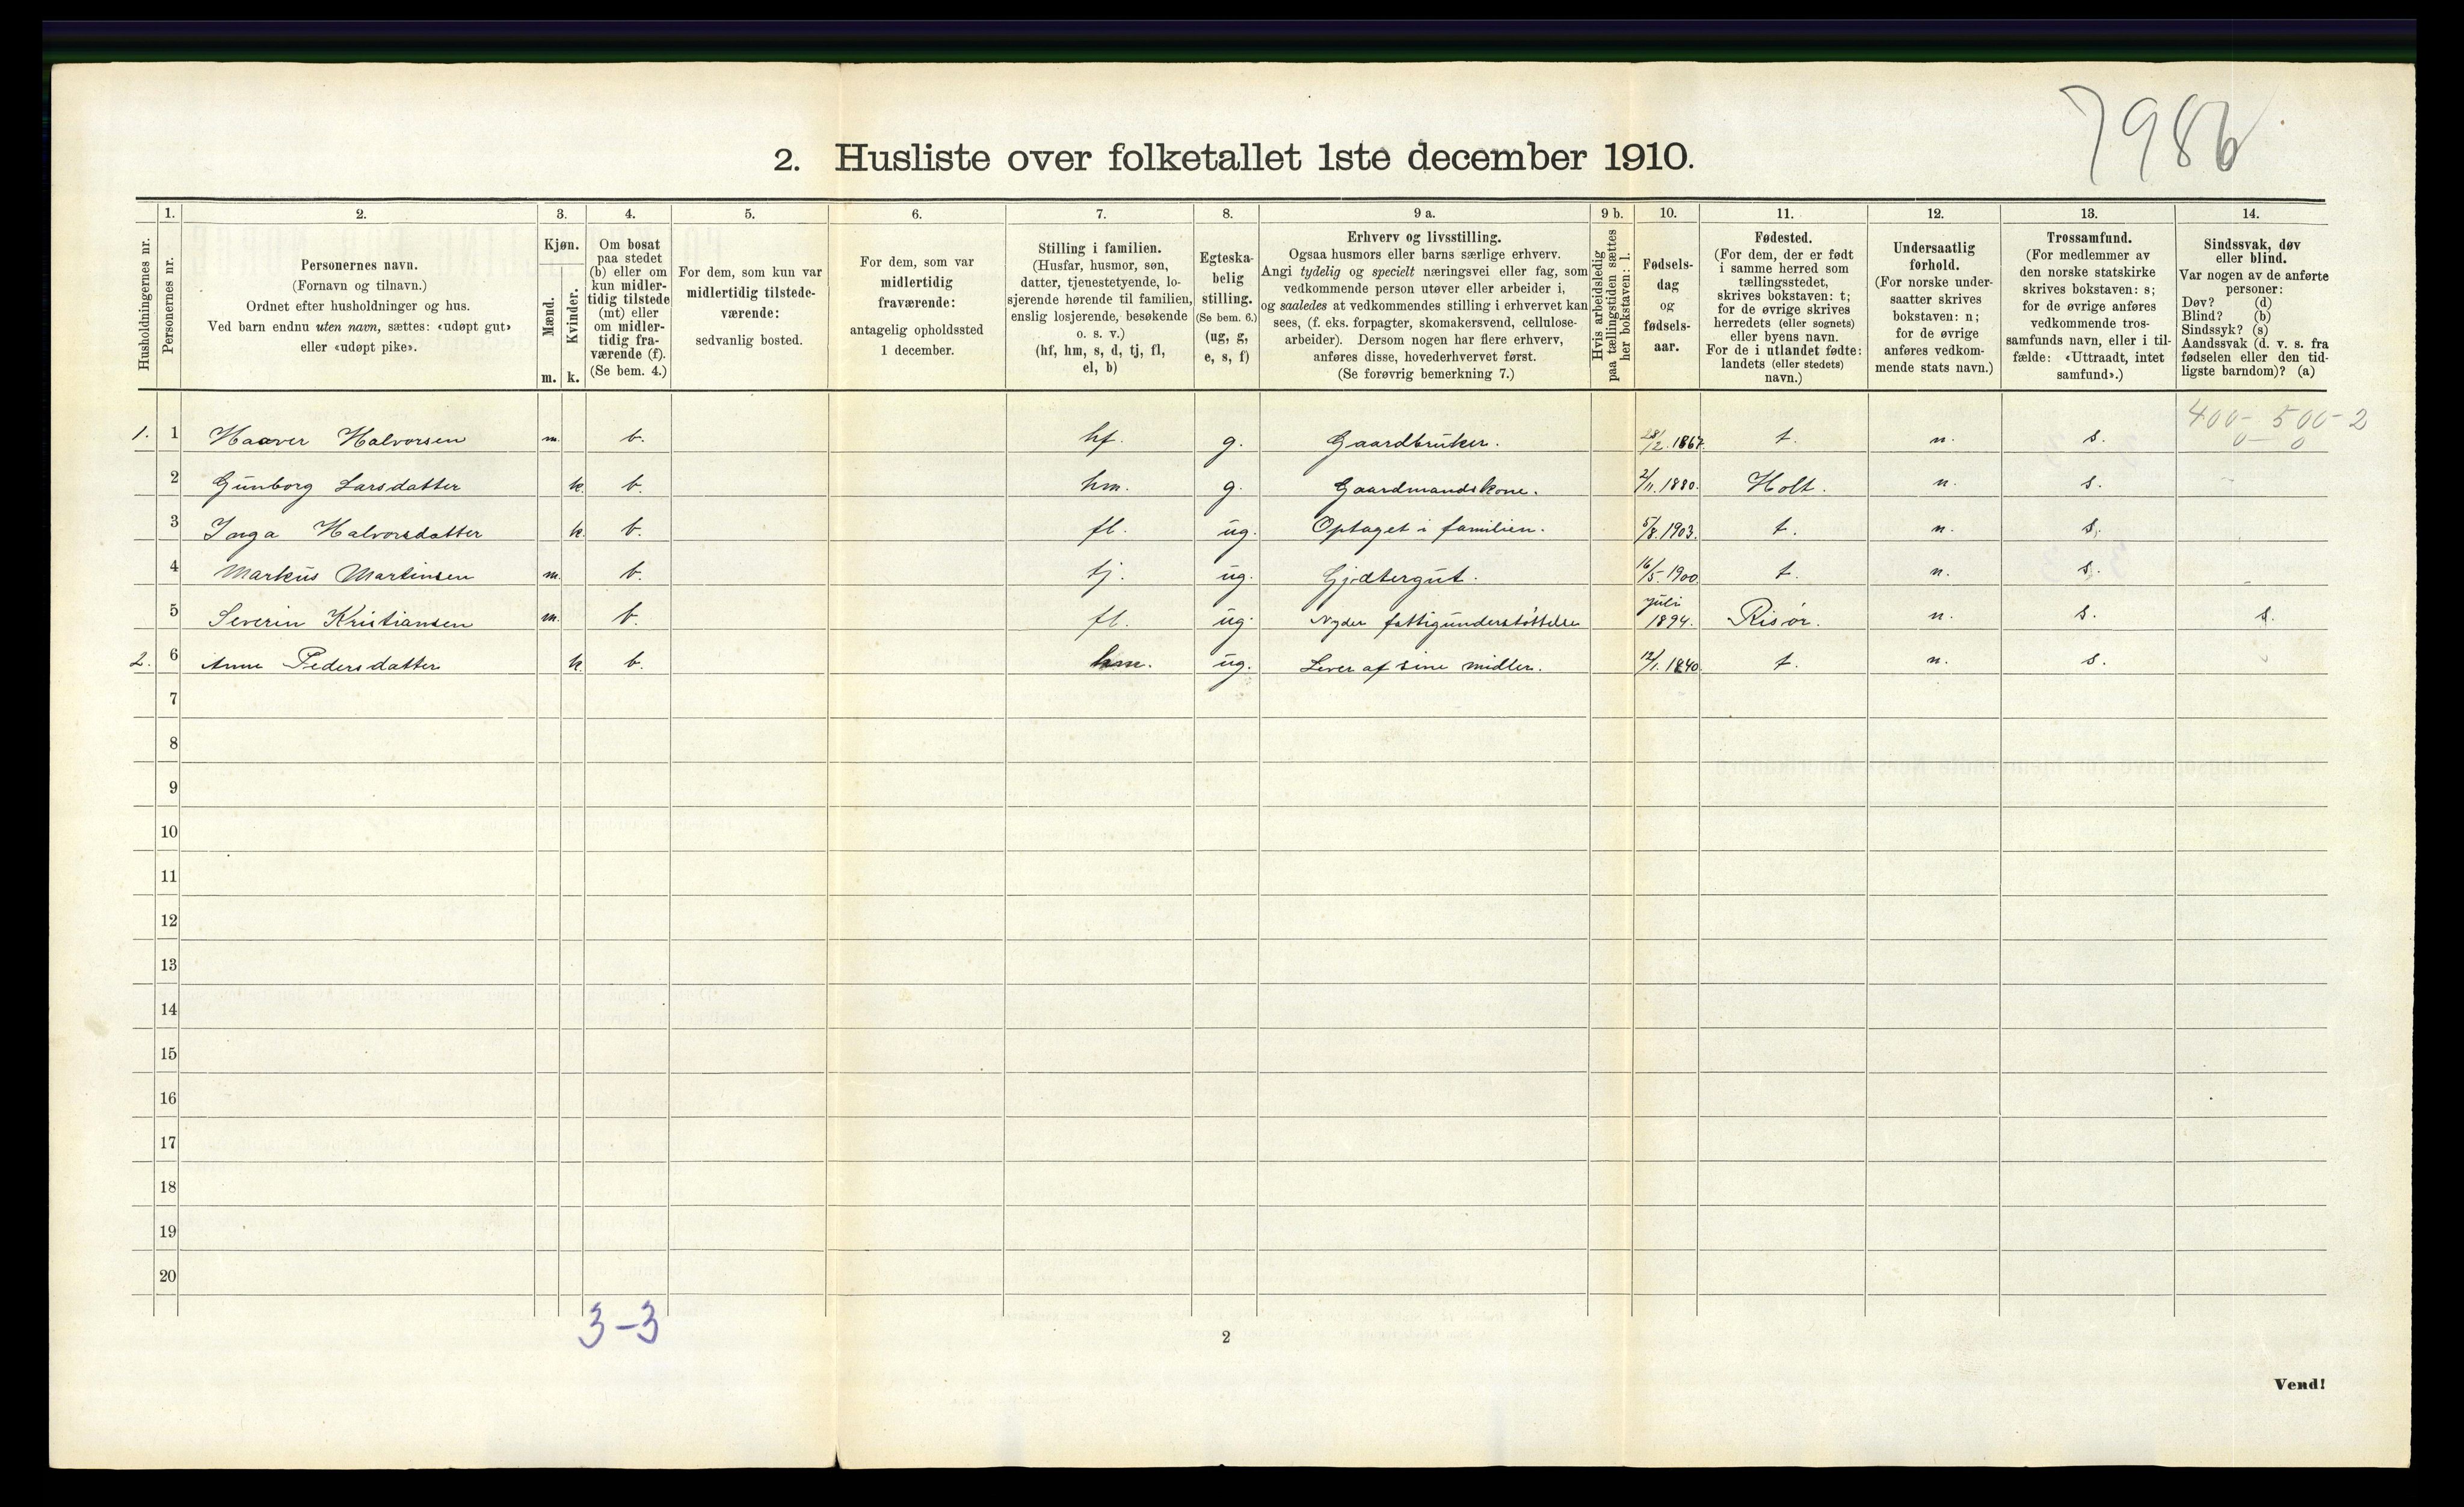 7986
2. Husliste over folketallet 1ste december 1910.
1. 2. 3. 4. 5. 6. 7. 8. 9 a. 9 b. 10. 11. 12. 13. 14.
Husholdningernes nr.
Personernes nr.
Personernes navn.
(Fornavn og tilnavn.)
Ordnet efter husholdninger og hus.
Ved barn endnu uten navn, sættes: «udøpt gut»
eller «udøpt pike».
Kjøn.
Mænd.
Kvinder.
m. k.
Om bosat
paa stedet
(b) eller om
kun midler-
tidig tilstede
(mt) eller
om midler-
tidig fra-
værende (f).
(Se bem. 4.)
For dem, som kun var
midlertidig tilstede-
værende:
sedvanlig bosted.
For dem, som var
midlertidig
fraværende:
antagelig opholdssted
1 december.
Stilling i familien.
(Husfar, husmor, søn,
datter, tjenestetyende, lo-
sjerende hørende til familien,
enslig losjerende, besøkende
o. s. v.)
(hf, hm, s, d, tj, fl,
el, b)
Egteska-
belig
stilling.
(Se bem. 6.)
(ug, g,
e, s, f)
Erhverv og livsstilling.
Ogsaa husmors eller barns særlige erhverv.
Angi tydelig og specielt næringsvei eller fag, som
vedkommende person utøver eller arbeider i,
og saaledes at vedkommendes stilling i erhvervet kan
sees, (f. eks. forpagter, skomakersvend, cellulose-
arbeider). Dersom nogen har flere erhverv,
anføres disse, hovederhvervet først.
(Se forøvrig bemerkning 7.)
Hvis arbeidsledig
paa tællingstiden sættes
her bokstaven: l.
Fødsels-
dag
og
fødsels-
aar.
Fødested.
(For dem, der er født
i samme herred som
tællingsstedet,
skrives bokstaven: t;
for de øvrige skrives
herredets (eller sognets)
eller byens navn.
For de i utlandet fødte:
landets (eller stedets)
navn.)
Undersaatlig
forhold.
(For norske under-
saatter skrives
bokstaven: n;
for de øvrige
anføres vedkom-
mende stats navn.)
Trossamfund.
(For medlemmer av
den norske statskirke
skrives bokstaven: s;
for de øvrige anføres
vedkommende tros-
samfunds navn, eller i til-
fælde: «Uttraadt, intet
samfund».)
Sindssvak, døv
eller blind.
Var nogen av de anførte
personer:
Døv? (d)
Blind? (b)
Sindssyk? (s)
Aandssvak (d. v. s. fra
fødselen eller den tid-
ligste barndom)? (a)
400- 500-2
0- 0
1. 1 Haaver Halvorsen m. b. hf. g. Gaardbruker. 28/2. 1867. t. n. s.
2 Gunborg Larsdatter k. b. hm. g. Gaardmandskone. 2/11. 1880. Holt. n. s.
3 Inga Halvorsdatter k. b. fl. ug. Optaget i familien. 5/8. 1903. t. n. s.
4 Markus Martinsen m. b. tj. ug. Gjætergut. 16/5. 1900. t. n. s.
5 Severin Kristiansen m. b. fl. ug. Nyder fattigunderstöttelse juli 1894. Risør. n. s. s.
2. 6 Anne Pedersdatter k. b. hm. ug. Lever af sine midler. 12/1. 1840. t. n. s.
7
8
9
10
11
12
13
14
15
16
17
18
19
20
3-3
2
Vend!